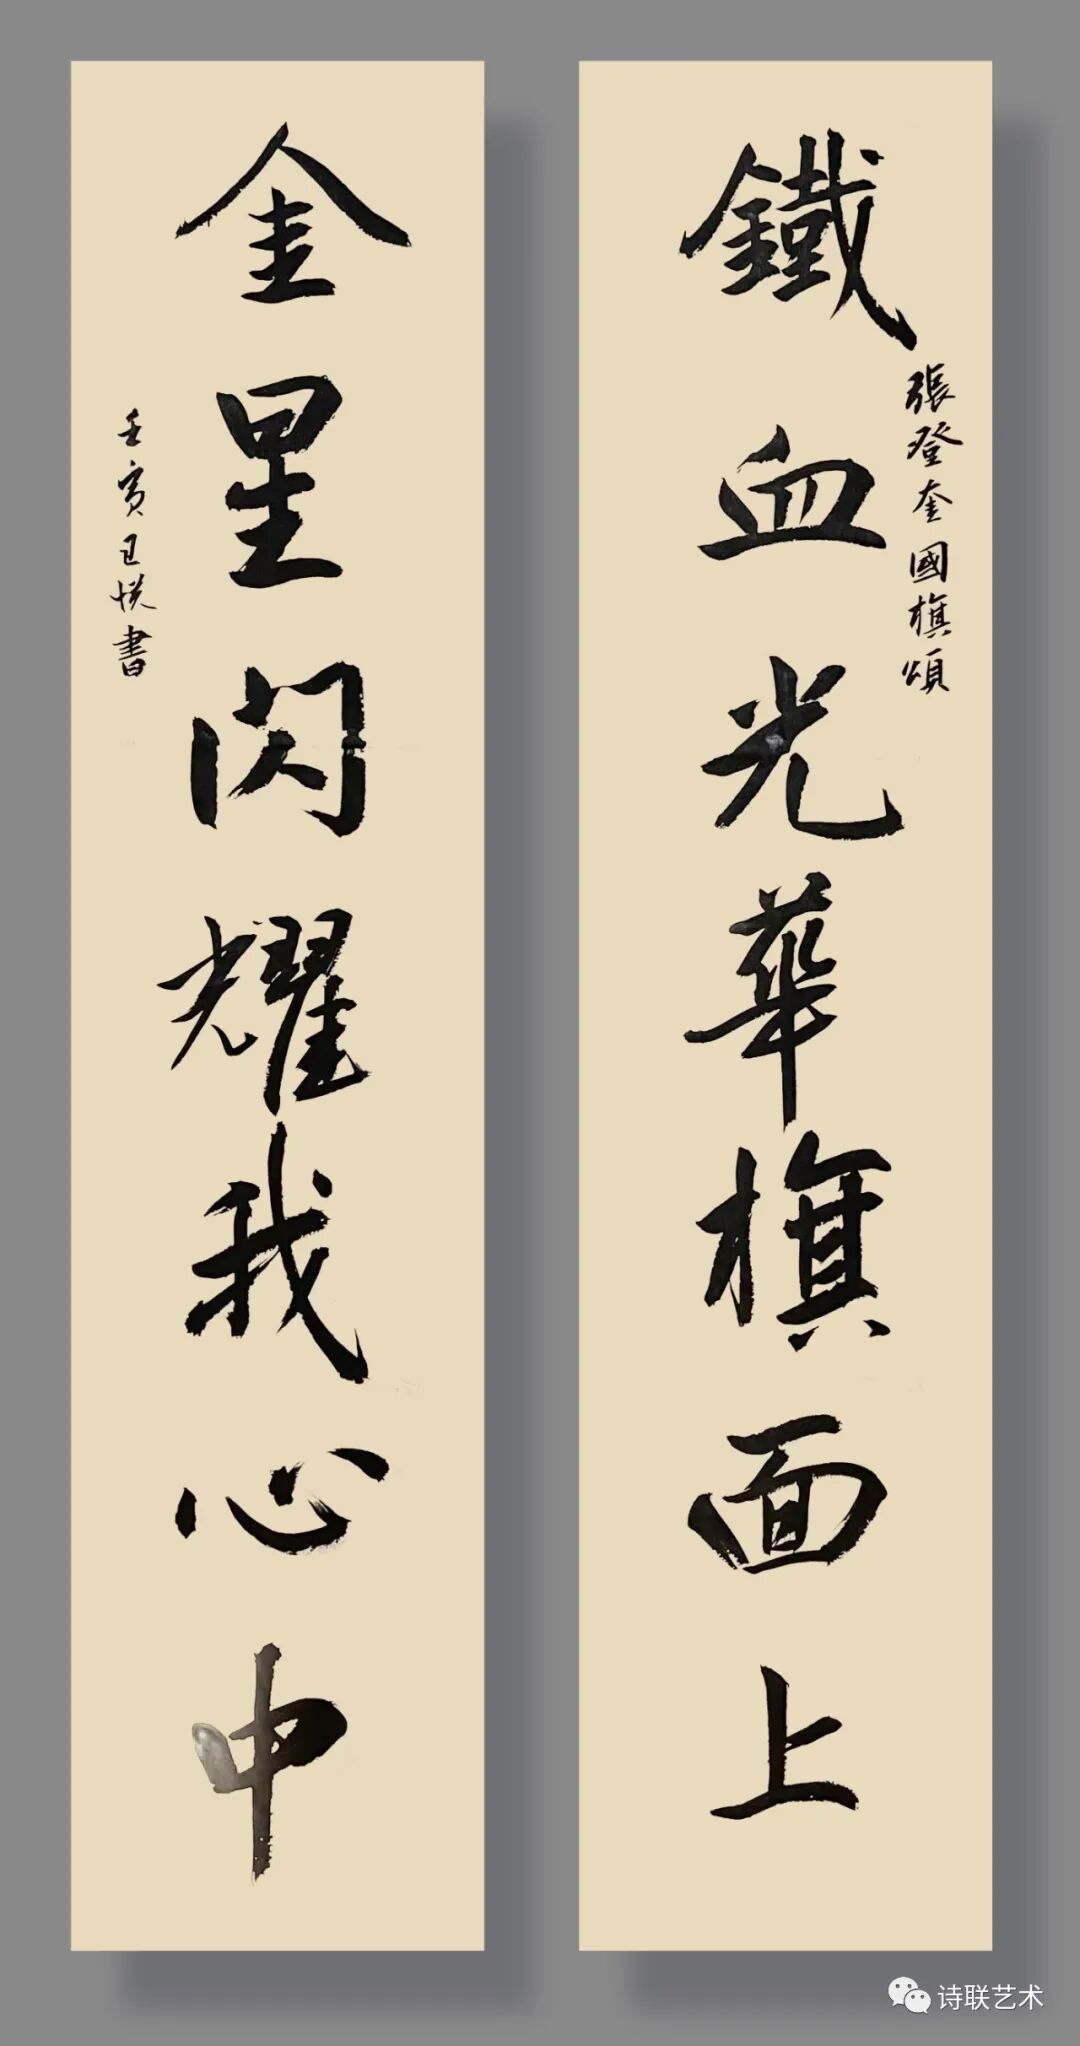 鐵血光華旗面上
張登奎國旗頌
金星閃耀我心中
壬寅 悦書
诗联艺术